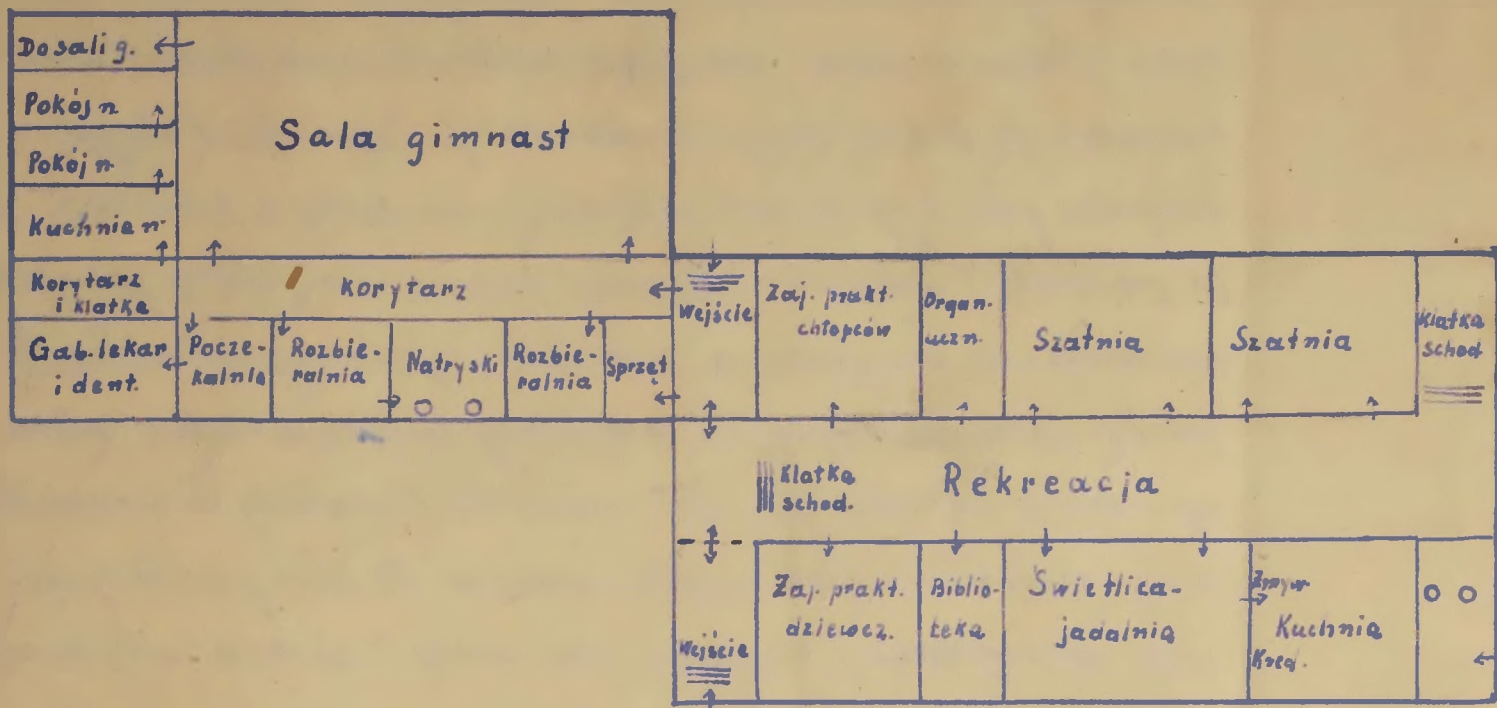 Do sali g.
Pokój n
Pokój n
Kuchnia n
Korytarz
i klatka
Gab. lekar
i dent.
Sala gimnast
Korytarz
Pocze-
kalnia
Rozbie-
ralnia
Natryski
Rozbie-
ralnia
Sprzęt
Wejście
Zaj. prakt.
chłopców
Organ.
uczn.
Szatnia
Szatnia
Klatka
schod
Klatka
schod.
Rekreacja
Wejście
Zaj. prakt.
dziewcz.
Biblio-
teka
Świetlica-
jadalnia
Zmyw.
Kuchnia
Kred.